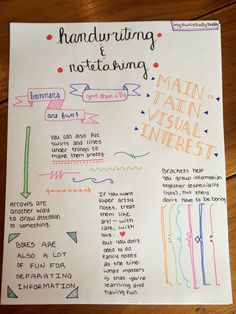 handwriting
&
notetaking
banners
are fun!
MAIN-
TAIN
VISUAL
INTEREST
you can also put
swirls and lines
under things to
make them pretty
ARROWS are
another way
to draw attention
to something.
BOXES ARE
ALSO A LOT
OF FUN FOR
SEPARATING
INFORMATION
If you want
super artsy
notes, treat
them like
art — with
care, with
love. ♥
but you don't
need to do
fancy notes
all the time.
what matters
is that you're
learning and
having fun.
Brackets help
you group information
together (especially
lists), but they
don't have to be boring